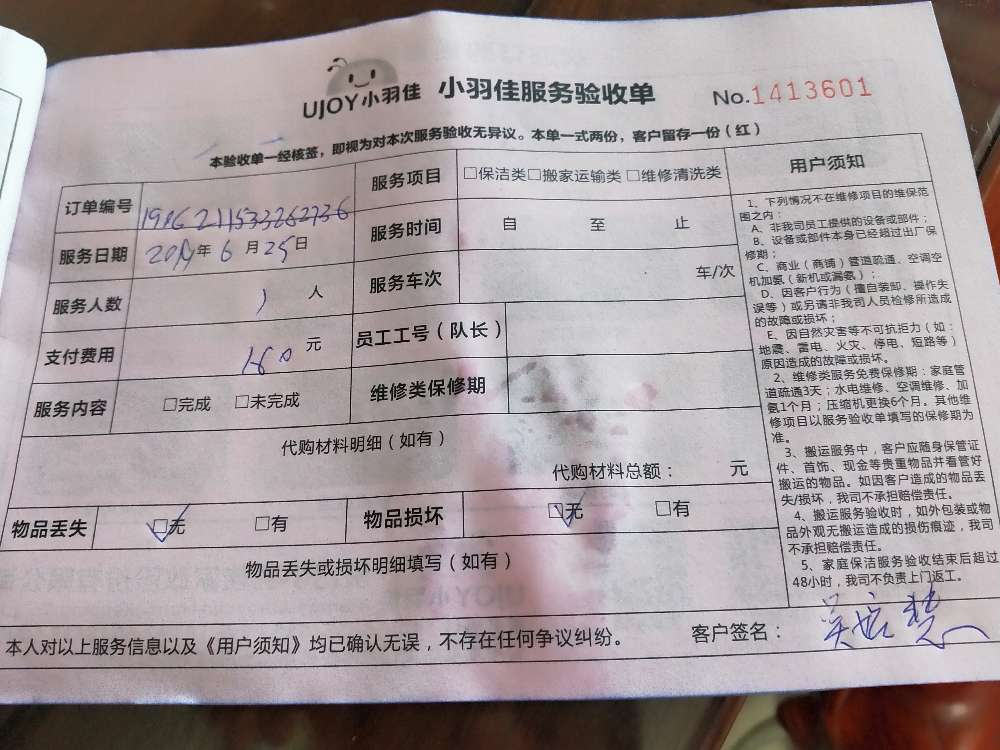 UJOY小羽佳 小羽佳服务验收单 No.1413601
本验收单一经核签，即视为对本次服务验收无异议。本单一式两份，客户留存一份（红）
订单编号 1906211533262736
服务项目 □保洁类□搬家运输类 □维修清洗类
服务日期 2019年6月25日
服务时间 自 至 止
服务人数 1 人
服务车次 车/次
支付费用 160 元
员工工号（队长）
服务内容 □完成 □未完成
维修类保修期
代购材料明细（如有）
代购材料总额： 元
物品丢失 ☑无 □有
物品损坏 ☑无 □有
物品丢失或损坏明细填写（如有）
用户须知
1、下列情况不在维修项目的维保范
围之内：
A、非我司员工提供的设备或部件；
B、设备或部件本身已经超过出厂保
修期；
C、商业（商铺）管道疏通、空调空
机加氨（新机或漏氨）；
D、因客户行为（擅自装卸、操作失
误等）或另请非我司人员检修所造成
的故障或损坏；
E、因自然灾害等不可抗拒力（如：
地震、雷电、火灾、停电、短路等）
原因造成的故障或损坏。
2、维修类服务免费保修期：家庭管
道疏通3天；水电维修、空调维修、加
氨1个月；压缩机更换6个月。其他维
修项目以服务验收单填写的保修期为
准。
3、搬运服务中，客户应随身保管证
件、首饰、现金等贵重物品并看管好
搬运的物品。如因客户造成的物品丢
失/损坏，我司不承担赔偿责任。
4、搬运服务验收时，如外包装或物
品外观无搬运造成的损伤痕迹，我司
不承担赔偿责任。
5、家庭保洁服务验收结束后超过
48小时，我司不负责上门返工。
本人对以上服务信息以及《用户须知》均已确认无误，不存在任何争议纠纷。 客户签名：